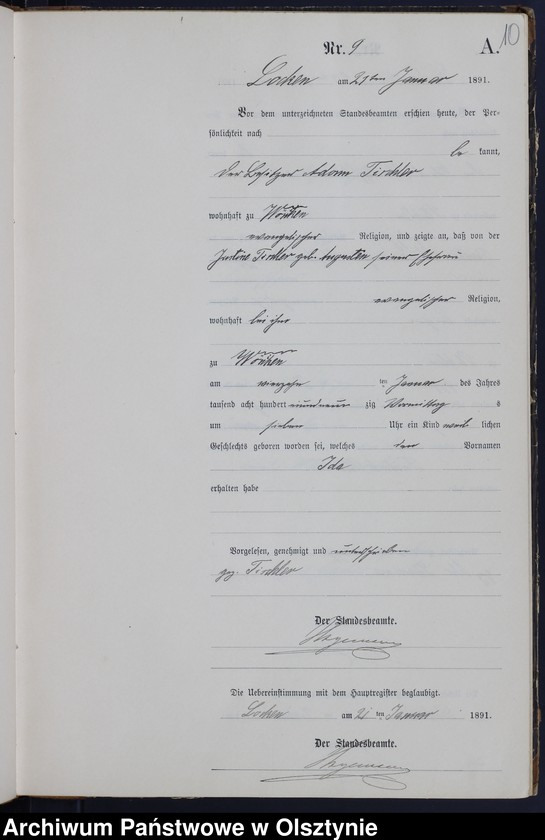 10
Nr. 9 A.
Locken am 21ten Januar 1891.
Vor dem unterzeichneten Standesbeamten erschien heute, der Per-
sönlichkeit nach
be kannt,
der Besitzer Adam Tischler
wohnhaft zu
evangelischer Religion, und zeigte an, daß von der
Tischler geb. seiner Ehefrau
evangelischer Religion,
wohnhaft bei ihm
zu
am vierzehn ten Januar des Jahres
tausend acht hundert einundneun zig Vormittag s
um sieben Uhr ein Kind weib lichen
Geschlechts geboren worden sei, welches den Vornamen
Ida
erhalten habe
Vorgelesen, genehmigt und unterschrieben
gez. Tischler
Der Standesbeamte.
Die Uebereinstimmung mit dem Hauptregister beglaubigt.
Locken am 21 ten Januar 1891.
Der Standesbeamte.
Archiwum Państwowe w Olsztynie